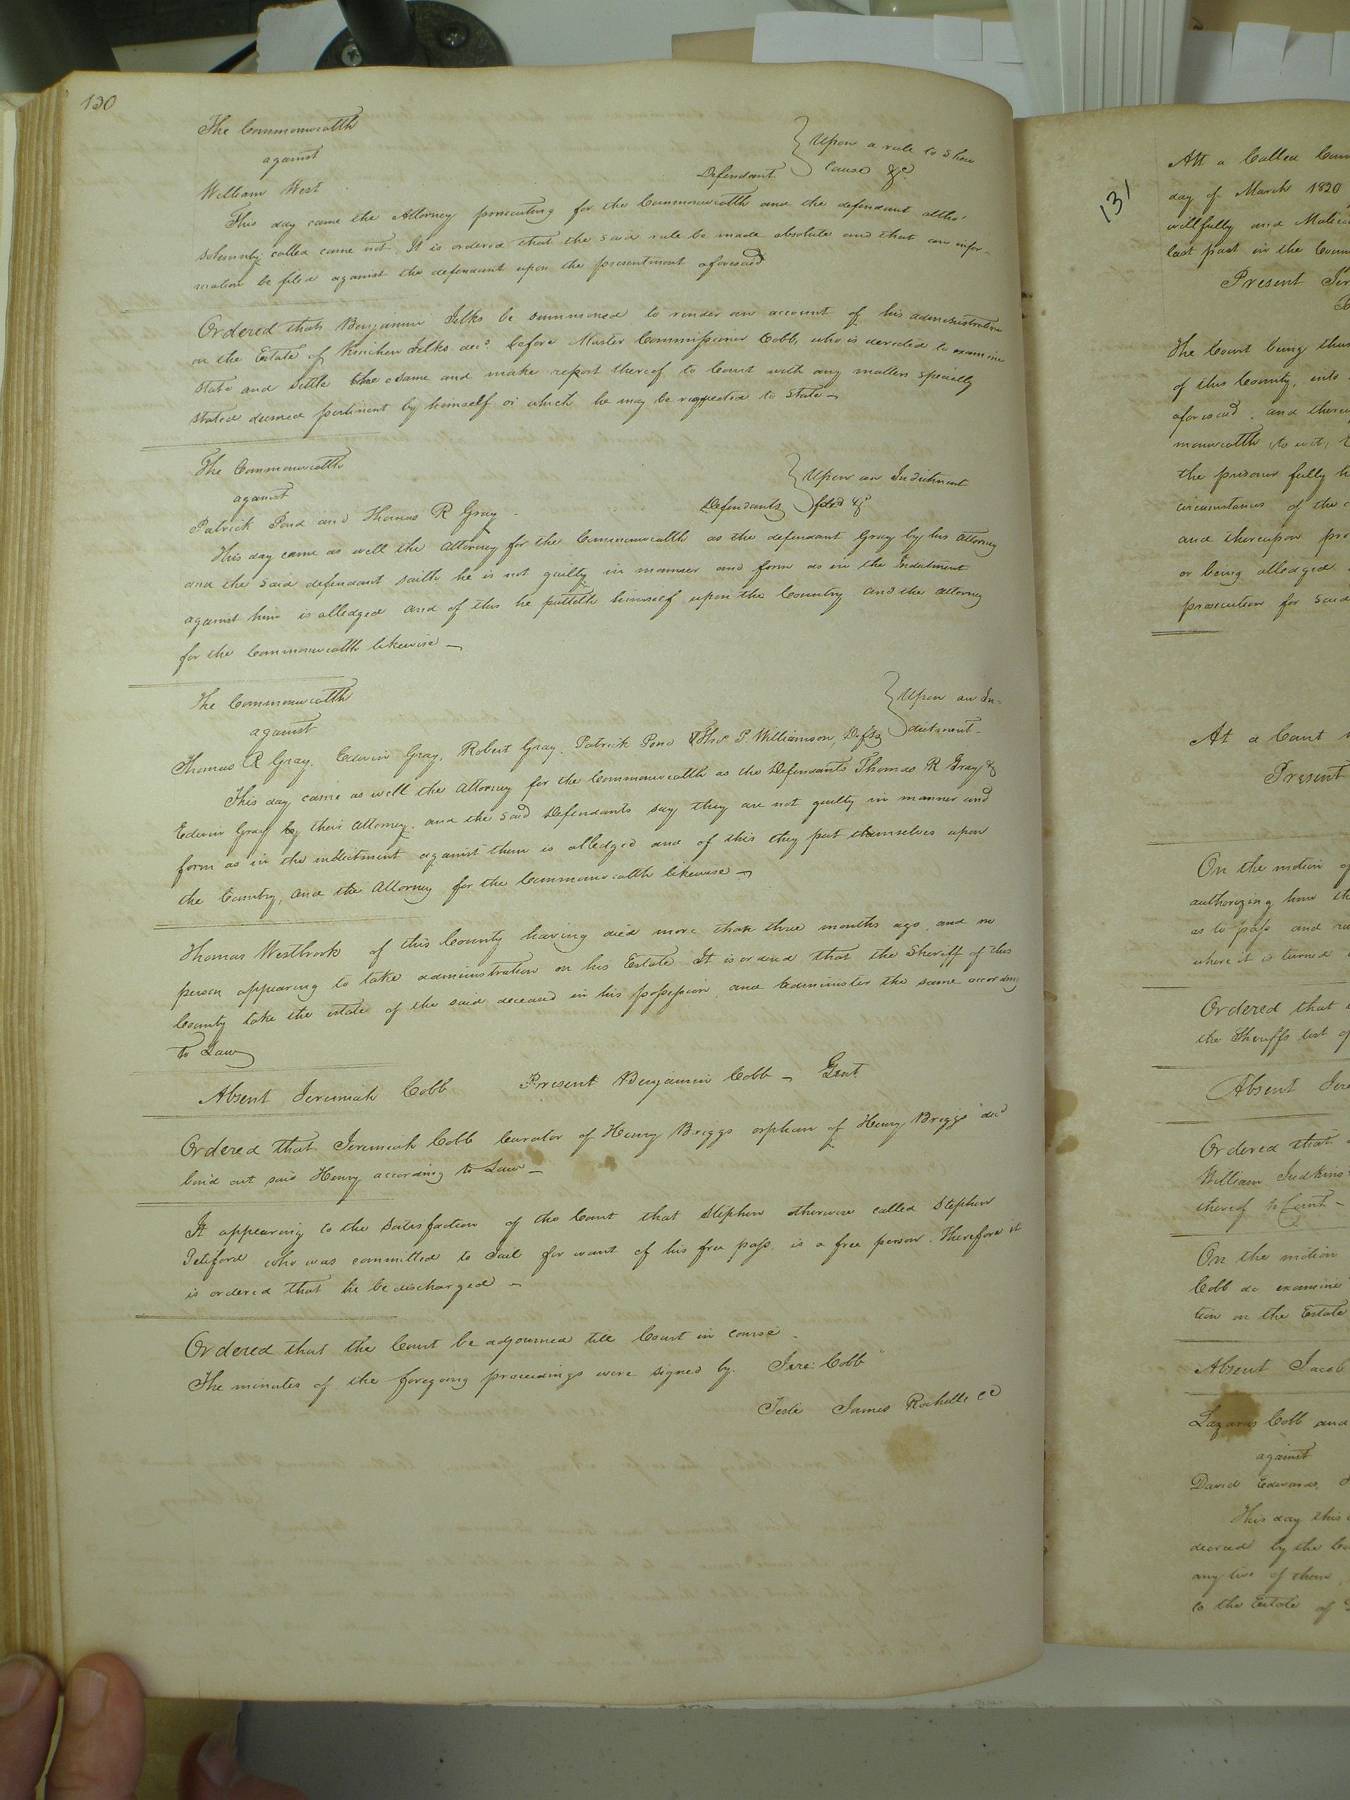 130
The Commonwealth
against
William West Defendant } Upon a rule to shew cause &c
This day came the Attorney prosecuting for the Commonwealth and the defendant altho'
solemnly called came not. It is ordered that the said rule be made absolute and that an infor-
mation be filed against the defendant upon the presentment aforesaid
Ordered that Benjamin Jelks be summoned to render an account of his administration
on the Estate of Kinchen Jelks decd. before Master Commissioner Cobb, who is directed to examine
state and settle the same and make report thereof to Court with any matters specially
stated deemed pertinent by himself or which he may be requested to state
The Commonwealth
against
Patrick Pond and Thomas R Gray Defendants } Upon an Indictment filed &c
This day came as well the attorney for the Commonwealth as the defendant Gray by his attorney
and the said defendant saith he is not guilty in manner and form as in the Indictment
against him is alledged and of this he putteth himself upon the Country and the attorney
for the Commonwealth likewise
The Commonwealth
against
Thomas R Gray, Edwin Gray, Robert Gray, Patrick Pond & Thos. P. Williamson, Defts } Upon an In-dictment.
This day came as well the attorney for the Commonwealth as the Defendants Thomas R Gray &
Edwin Gray by their attorney, and the said Defendants say they are not guilty in manner and
form as in the indictment against them is alledged and of this they put themselves upon
the Country, and the attorney for the Commonwealth likewise
Thomas Westbrook of this County having died more than three months ago, and no
person appearing to take administration on his Estate It is ordered that the Sheriff of this
County take the estate of the said deceased in his possession, and administer the same according
to Law
Absent Jeremiah Cobb Present Benjamin Cobb Gent
Ordered that Jeremiah Cobb Curator of Henry Briggs orphan of Henry Briggs decd
bind out said Henry according to Law
It appearing to the satisfaction of the Court that Stephen otherwise called Stephen
Teliford who was committed to Jail for want of his free pass, is a free person. Therefore it
is ordered that he be discharged
Ordered that the Court be adjourned till Court in course
The minutes of the foregoing proceedings were signed by. Jere: Cobb
Teste James Rochelle CC
131
At a Called
day of March 1820
willfully and
last past in the
Present
The Court being
of this County, unto
aforesaid, and
monwealth, to wit,
the prisoner fully
circumstances of the
and thereupon
or being alledged
prosecution for said
At a Court
Present
On the motion of
authorizing him
as to pass and
where it is turned
Ordered that
the Sheriffs list of
Absent
Ordered that
William Judkins
thereof to Court
On the motion
Cobb do examine
tion on the Estate
Absent Jacob
Lazarus Cobb and
against
David Edwards,
This day this
decreed by the
any two of them,
to the Estate of